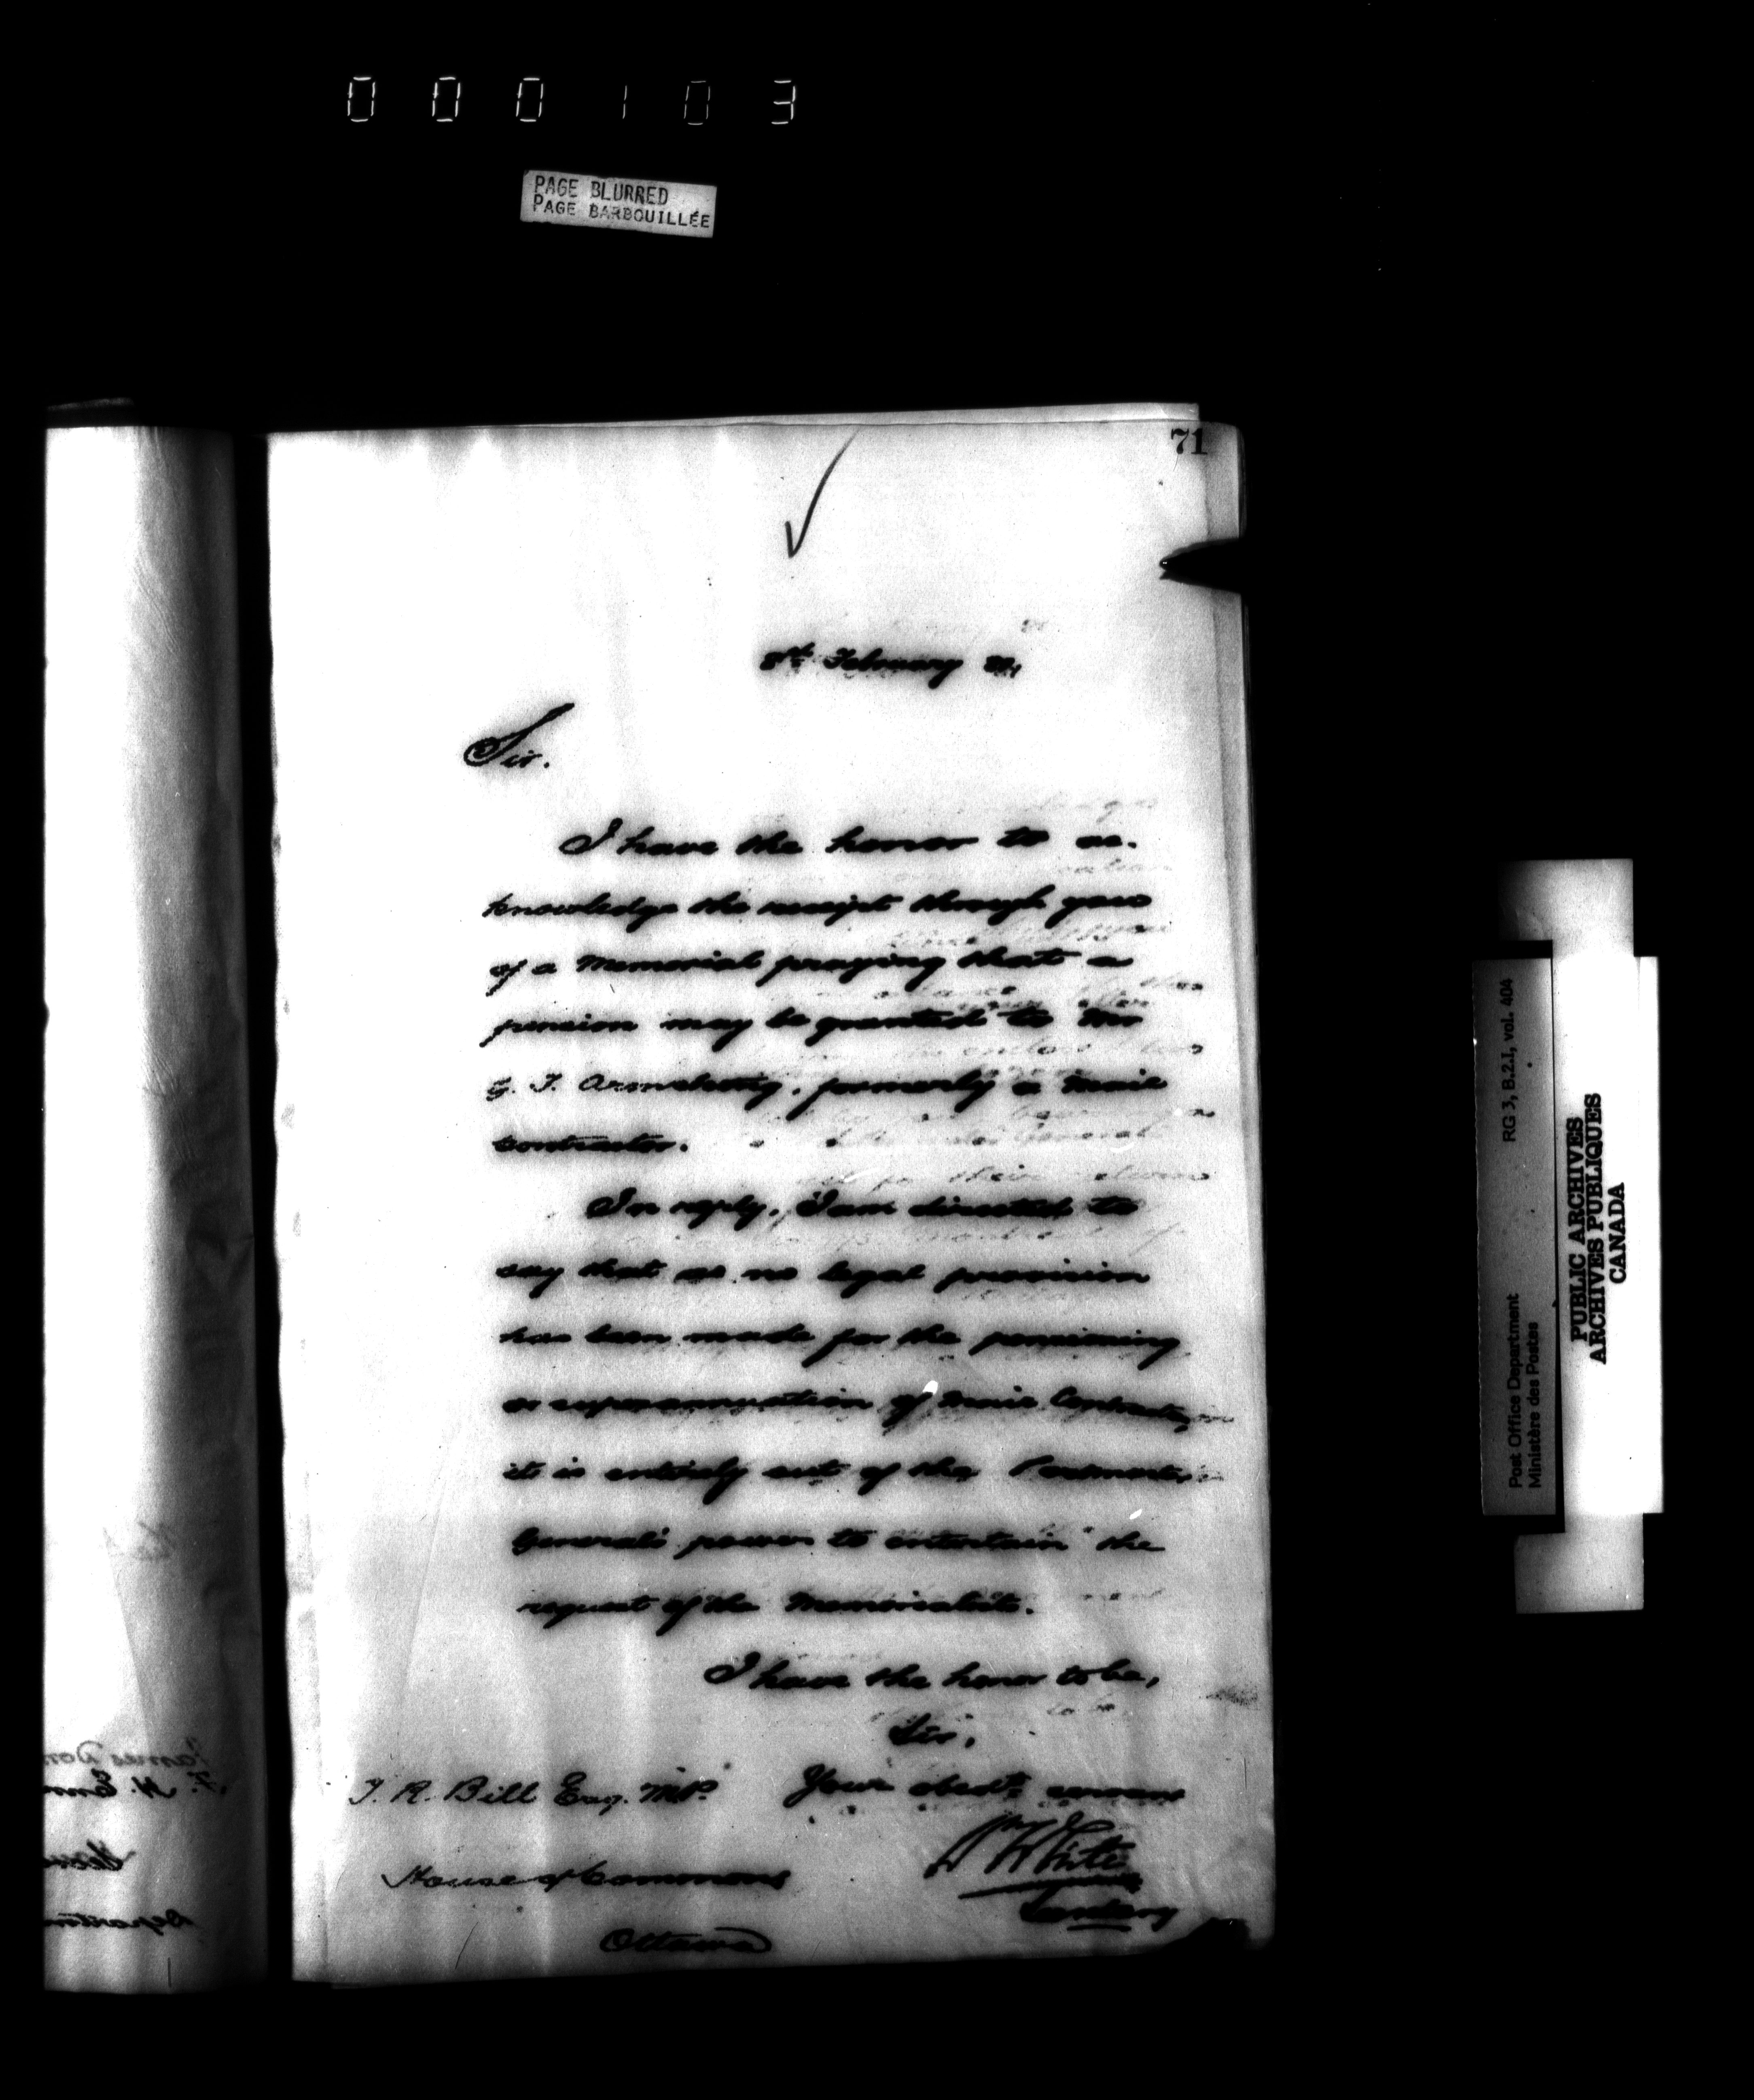 000103
PAGE BLURRED
PAGE BARBOUILLÉE
71
8th February
Sir.
I have the honor to ac-
knowledge the receipt through you
of a Memorial praying that a
pension may be granted to Mr
G. T. Armstrong, formerly a Mail
contractor.
In reply, I am directed to
say that as no legal provision
has been made for the pensioning
or superannuation of Mail Contractors,
it is entirely out of the Postmaster
General's power to entertain the
request of the Memorialists.
I have the honor to be,
Sir,
Your obedt. servant
T. R. Bill Esq. M.P.
Wm White
House of Commons
Secretary
Ottawa
RG 3, B.2.1, vol. 404
Post Office Department
Ministère des Postes
PUBLIC ARCHIVES
ARCHIVES PUBLIQUES
CANADA